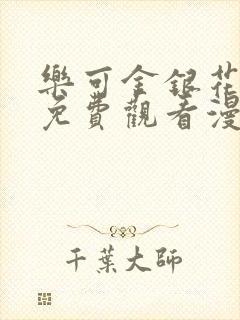 樂可金銀花
免費觀看漫
千葉大師